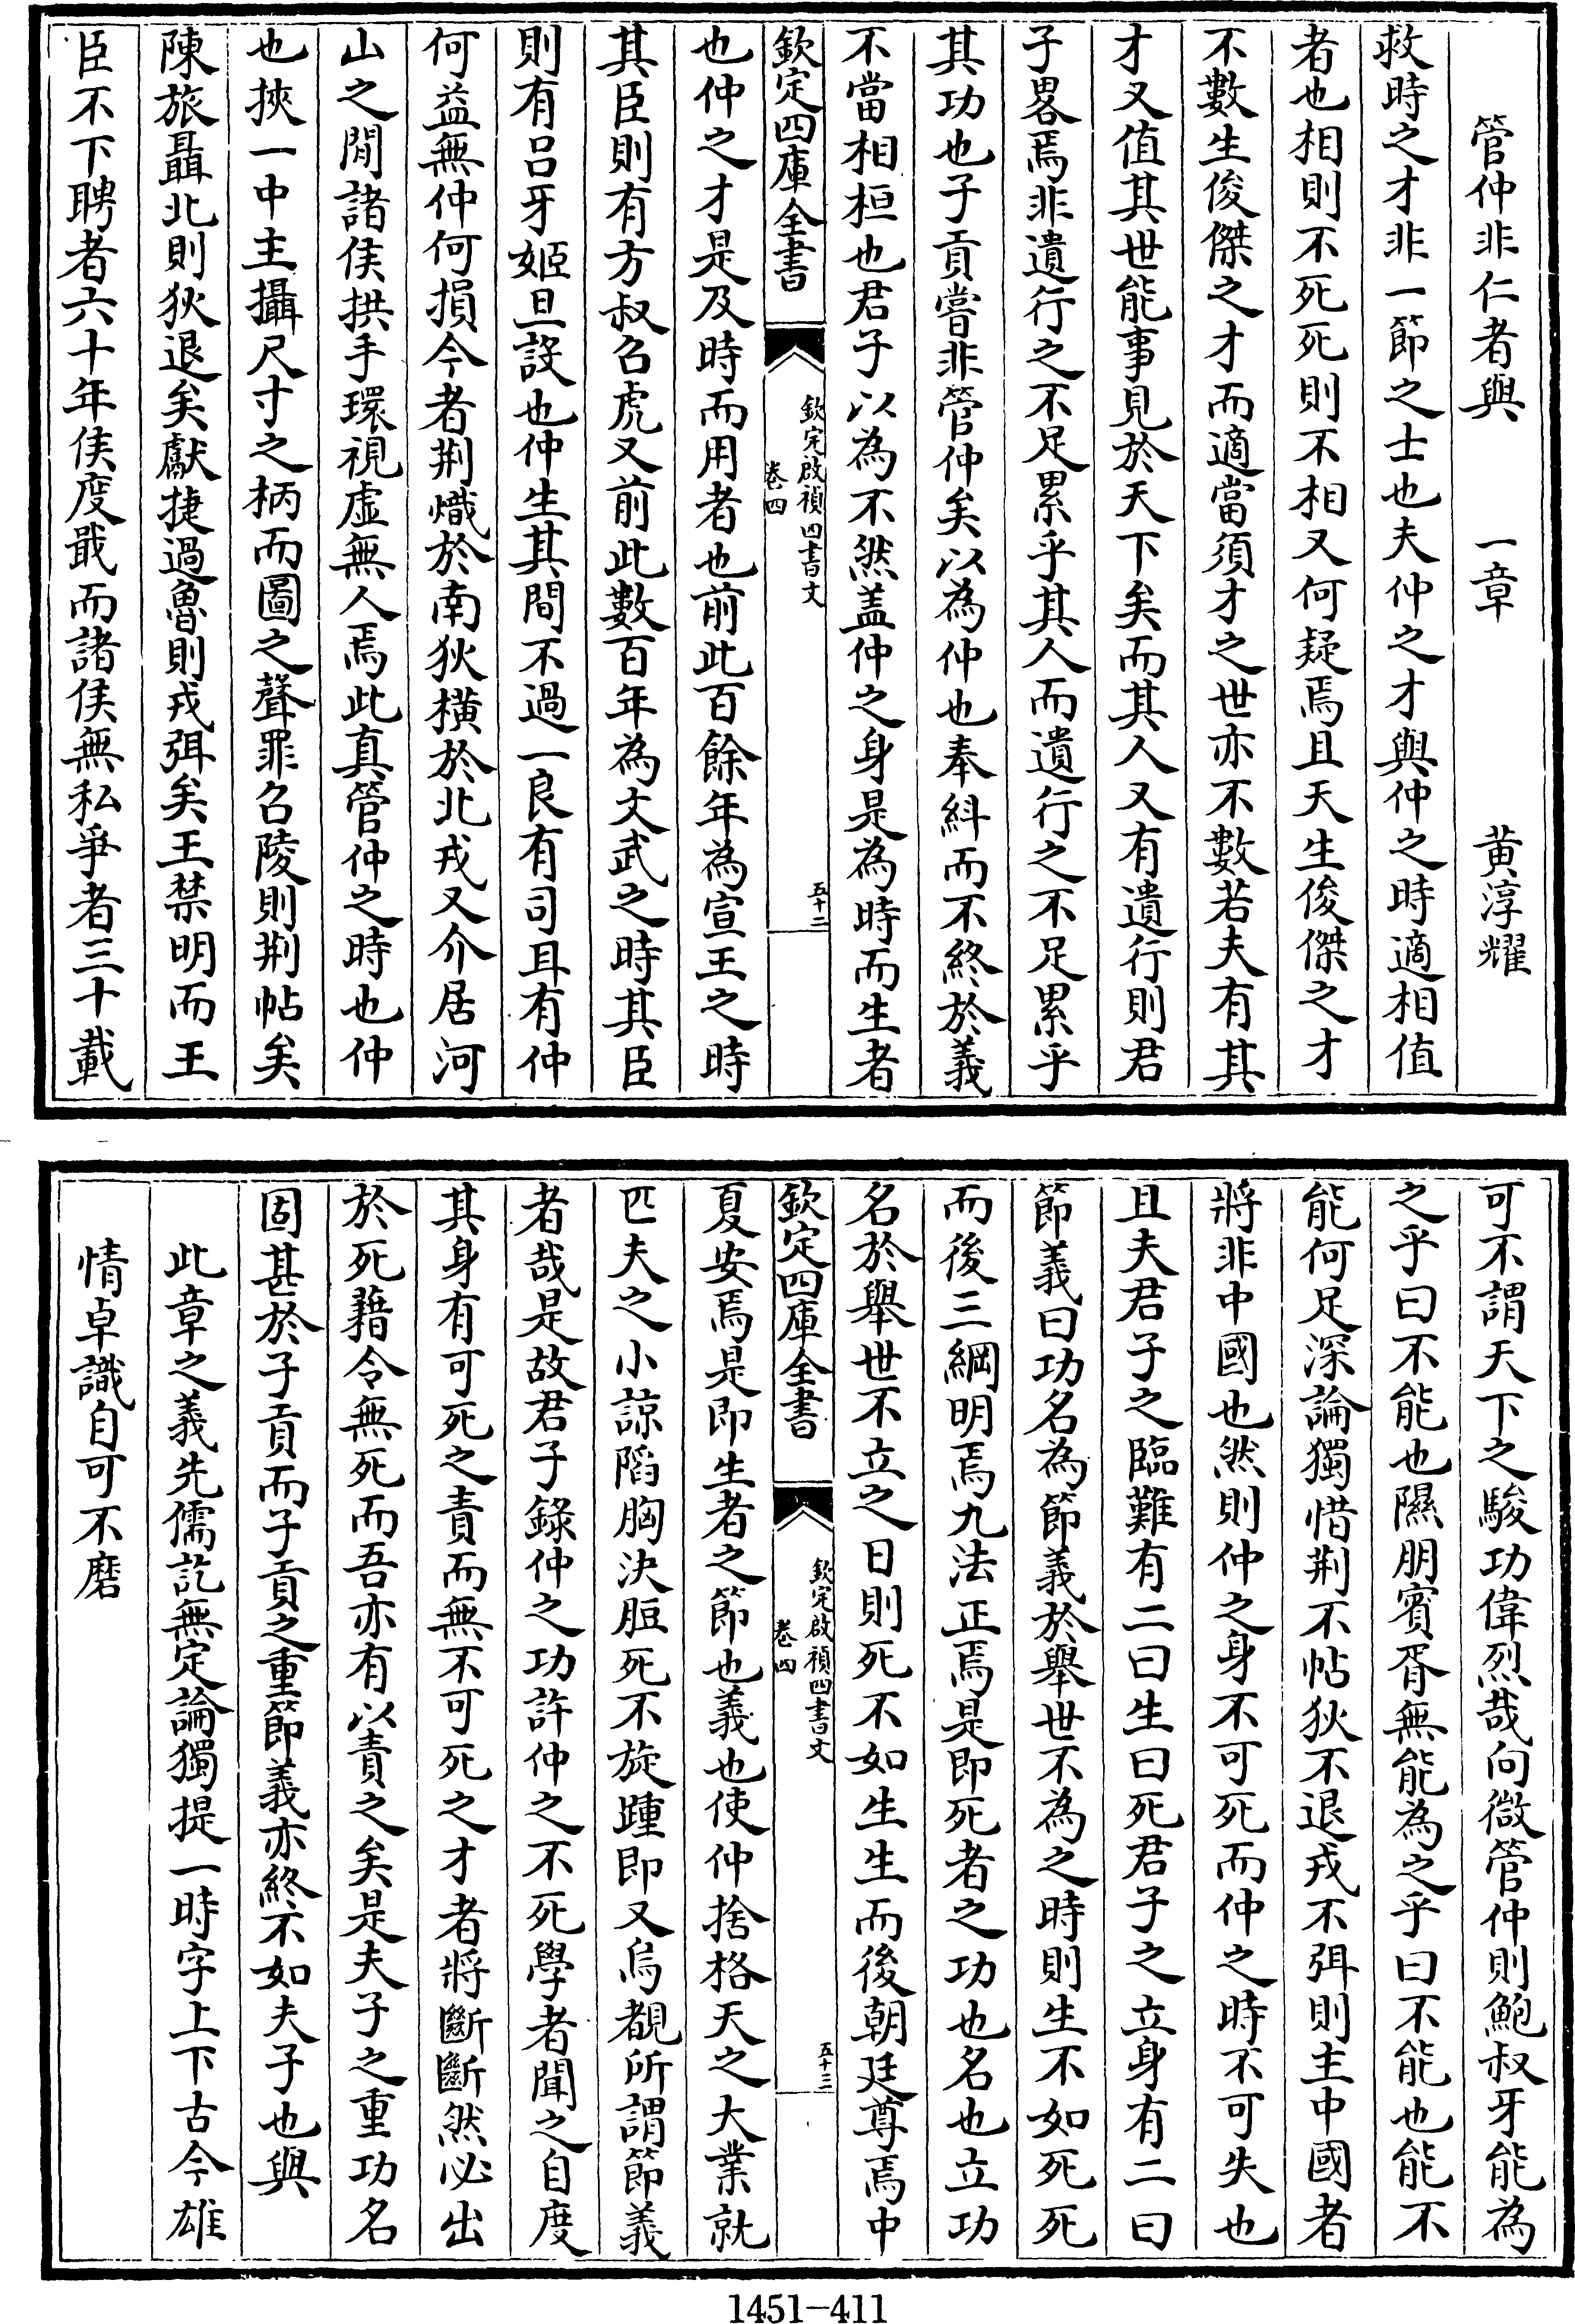 管仲非仁者與　一章　黃淳耀
救時之才非一節之士也夫仲之才與仲之時適相值
者也相則不死死則不相又何疑焉且天生俊傑之才
不數生俊傑之才而適當須才之世亦不數若夫有其
才又值其世能事見於天下矣而其人又有遺行則君
子畧焉非遺行之不足累乎其人而遺行之不足累乎
其功也子貢嘗非管仲矣以為仲也奉糾而不終於義
不當相桓也君子以為不然盖仲之身是為時而生者
欽定四庫全書
欽定啟禎四書文
卷四
五十二
也仲之才是及時而用者也前此百餘年為宣王之時
其臣則有方叔召虎又前此數百年為文武之時其臣
則有呂牙姬旦設也仲生其間不過一良有司耳有仲
何益無仲何損今者荆熾於南狄橫於北戎又介居河
山之間諸侯拱手環視虛無人焉此真管仲之時也仲
也挾一中主攝尺寸之柄而圖之聲罪召陵則荆帖矣
陳旅聶北則狄退矣獻捷過魯則戎弭矣王禁明而王
臣不下聘者六十年侯度戢而諸侯無私爭者三十載
可不謂天下之駿功偉烈哉向微管仲則鮑叔牙能為
之乎曰不能也隰朋賓胥無能為之乎曰不能也能不
能何足深論獨惜荆不帖狄不退戎不弭則主中國者
將非中國也然則仲之身不可死而仲之時不可失也
且夫君子之臨難有二曰生曰死君子之立身有二曰
節義曰功名為節義於舉世不為之時則生不如死死
而後三綱明焉九法正焉是即死者之功也名也立功
名於舉世不立之日則死不如生生而後朝廷尊焉中
欽定四庫全書
欽定啟禎四書文
卷四
五十三
夏安焉是即生者之節也義也使仲捨格天之大業就
匹夫之小諒陷胸決脰死不旋踵即又烏覩所謂節義
者哉是故君子錄仲之功許仲之不死學者聞之自度
其身有可死之責而無不可死之才者將斷斷然必出
於死藉令無死而吾亦有以責之矣是夫子之重功名
固甚於子貢而子貢之重節義亦終不如夫子也與
此章之義先儒訖無定論獨提一時字上下古今雄
情卓識自可不磨
1451-411